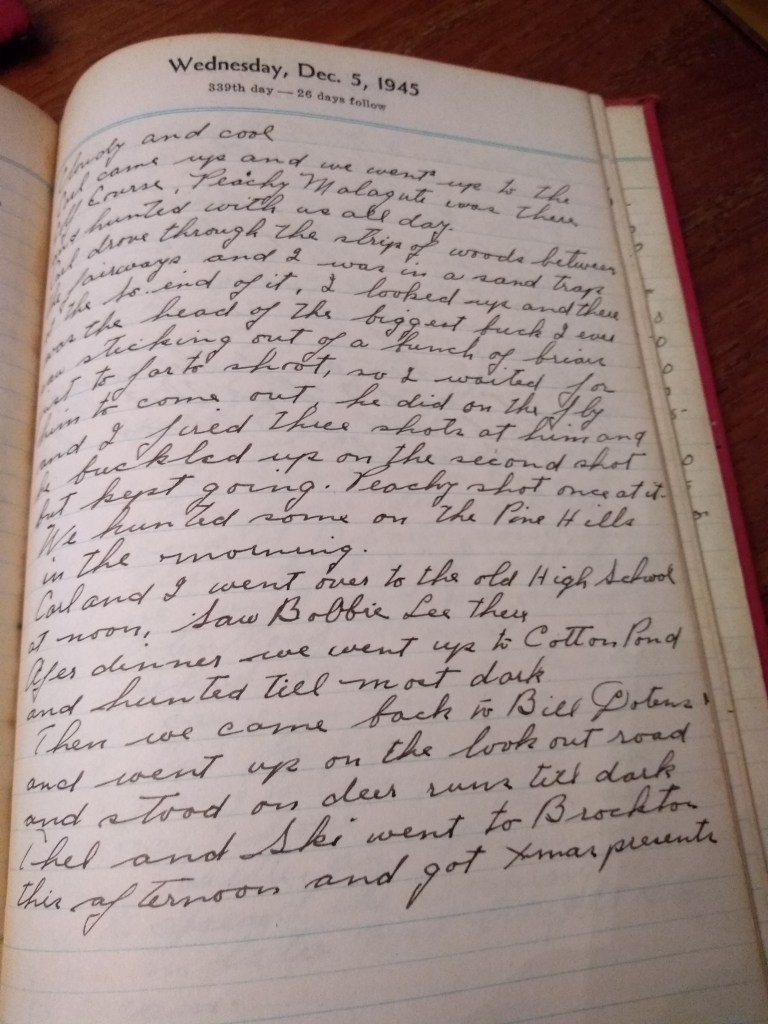 Wednesday, Dec. 5, 1945
339th day — 26 days follow
Cloudy and cool
Carl came up and we went up to the
Golf Course, Peachy Malaguti was there
and hunted with us all day.
Carl drove through the strip of woods between
the fairways and I was in a sand trap
at the to. end of it, I looked up and there
was the head of the biggest buck I ever
saw sticking out of a bunch of briar
but to far to shoot, so I waited for
him to come out, he did on the fly
and I fired three shots at him and
he buckled up on the second shot
but kept going. Peachy shot once at it.
We hunted some on the Pine Hills
in the morning.
Carl and I went over to the old High School
at noon, Saw Bobbie Lee there
Afer dinner we went up to Cotton Pond
and hunted till most dark
Then we came back to Bill Dotens'
and went up on the look out road
and stood on deer runs till dark
Thel and Ski went to Brockton
this afternoon and got Xmas presents